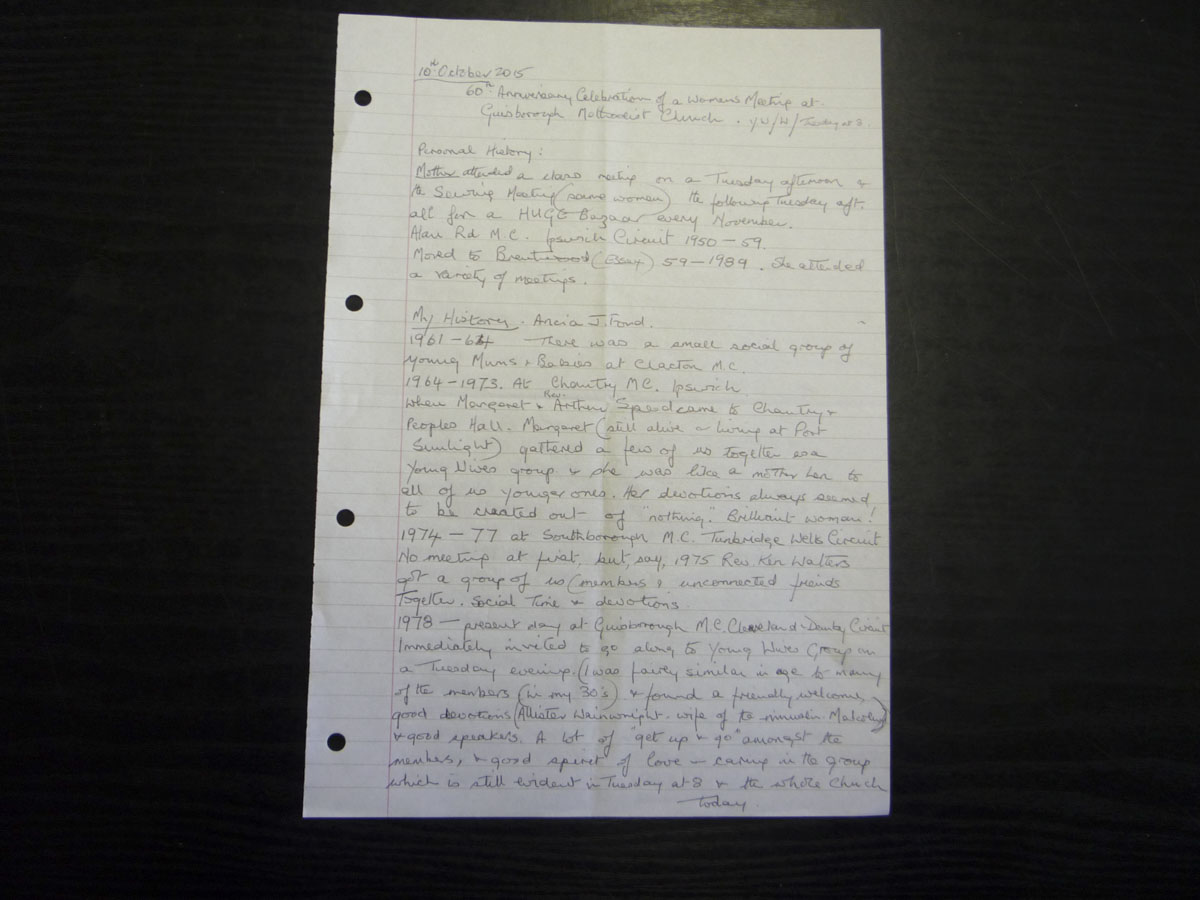 10th October 2015
60th Anniversary Celebration of a Womens Meeting at
Guisborough Methodist Church. YW/W/Tuesday at 8.
Personal History:
Mother attended a class meeting on a Tuesday afternoon &
the Sewing Meeting (same women) the following Tuesday aft.
all for a HUGE Bazaar every November.
Alan Rd M.C. Ipswich Circuit 1950 - 59.
Moved to Brentwood (Essex) 59 - 1989. She attended
a variety of meetings.
My History. J. Ford.
1961 - 64 There was a small social group of
Young Mums & Babies at Clacton M.C.
1964 - 1973. At Chantry MC. Ipswich
when Margaret & Rev. Arthur Speed came to Chantry &
Peoples Hall. Margaret (still alive & living at Port
Sunlight) gathered a few of us together as a
Young Wives group & she was like a mother hen to
all of us younger ones. Her devotions always seemed
to be created out of "nothing." Brilliant woman!
1974 - 77 at Southborough M.C. Tunbridge Wells Circuit
No meeting at first, but, say, 1975 Rev. Ken Walters
got a group of us (members & unconnected friends
together. Social Time & devotions.
1978 - present day at Guisborough M.C. Cleveland & Danby Circuit
Immediately invited to go along to Young Wives Group on
a Tuesday evening. (I was fairly similar in age to many
of the members (in my 30's) & found a friendly welcome,
good devotions (Allister Wainwright. wife of the minister Malcolm)
& good speakers. A lot of get up & go" amongst the
members, & good spirit of love & caring in the group
which is still evident in Tuesday at 8 & the whole Church
today.